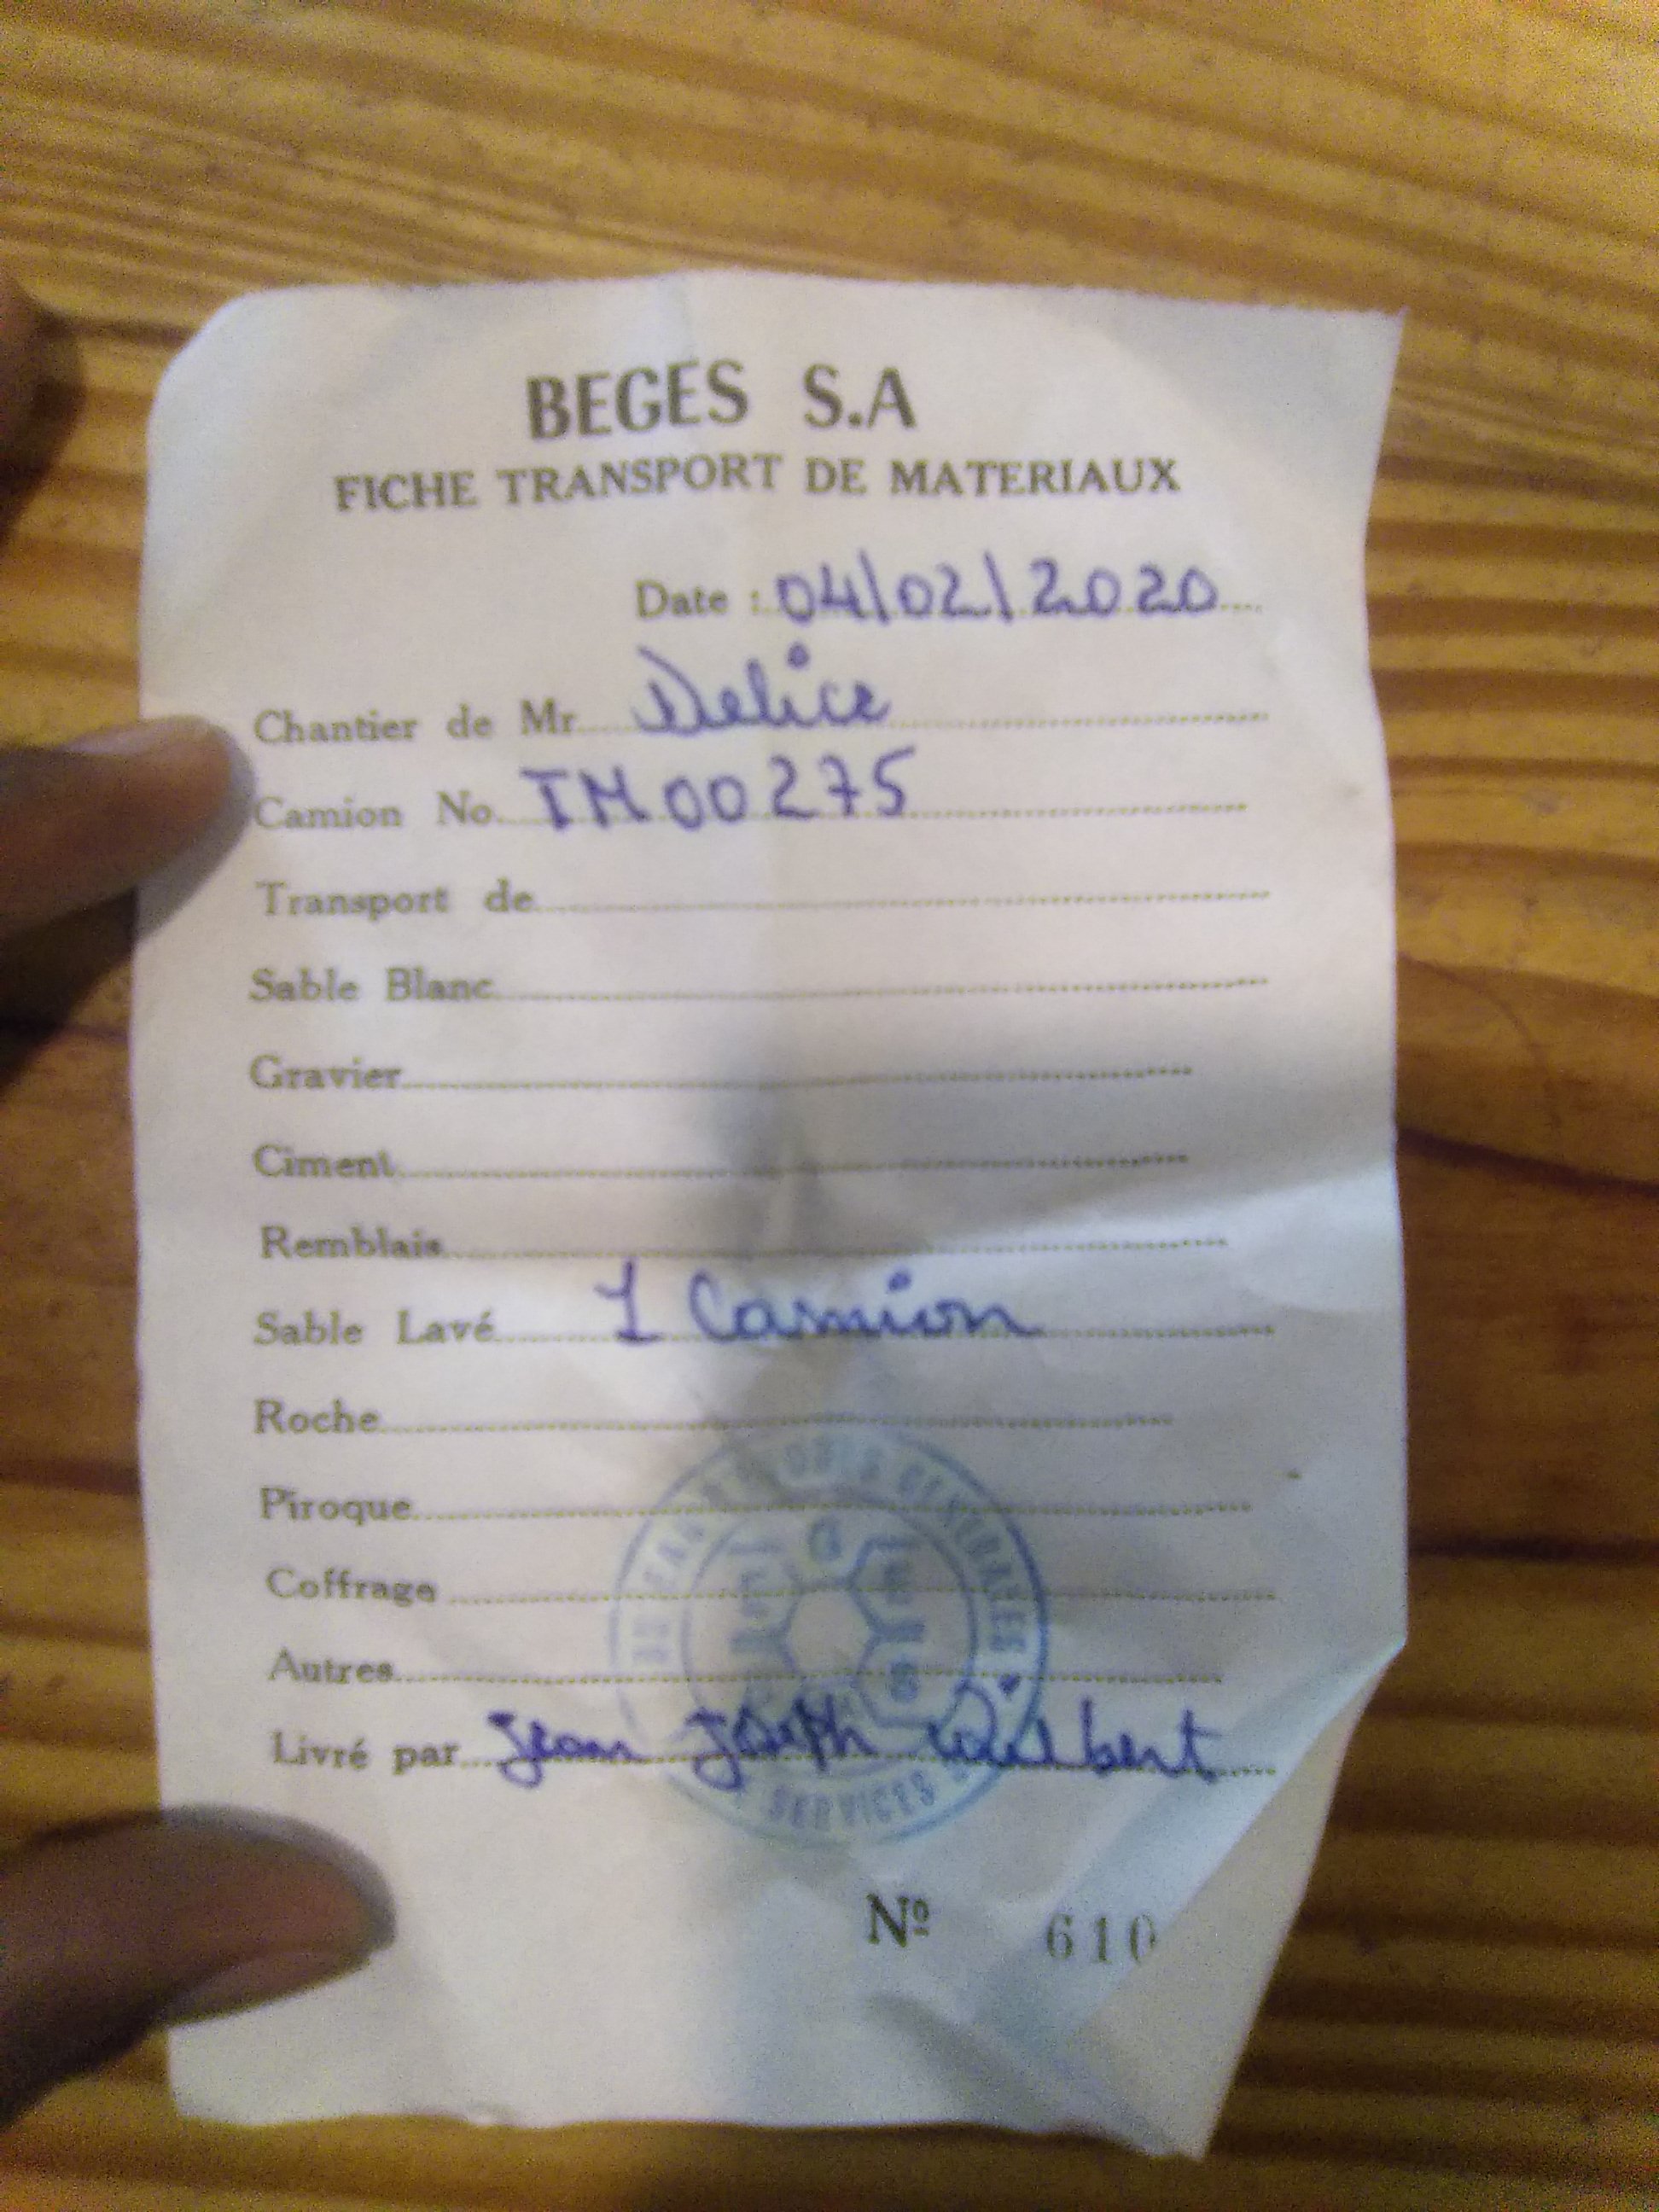 BEGES S.A
FICHE TRANSPORT DE MATERIAUX
Date : 04/02/2020
Chantier de Mr Delice
Camion No. IM00275
Transport de
Sable Blanc
Gravier
Ciment
Remblais
Sable Lavé 1 Camion
Roche
Piroque
Coffrage
Autres
Livré par Jean Joseph Wilbert
SERVICES
Nº 610